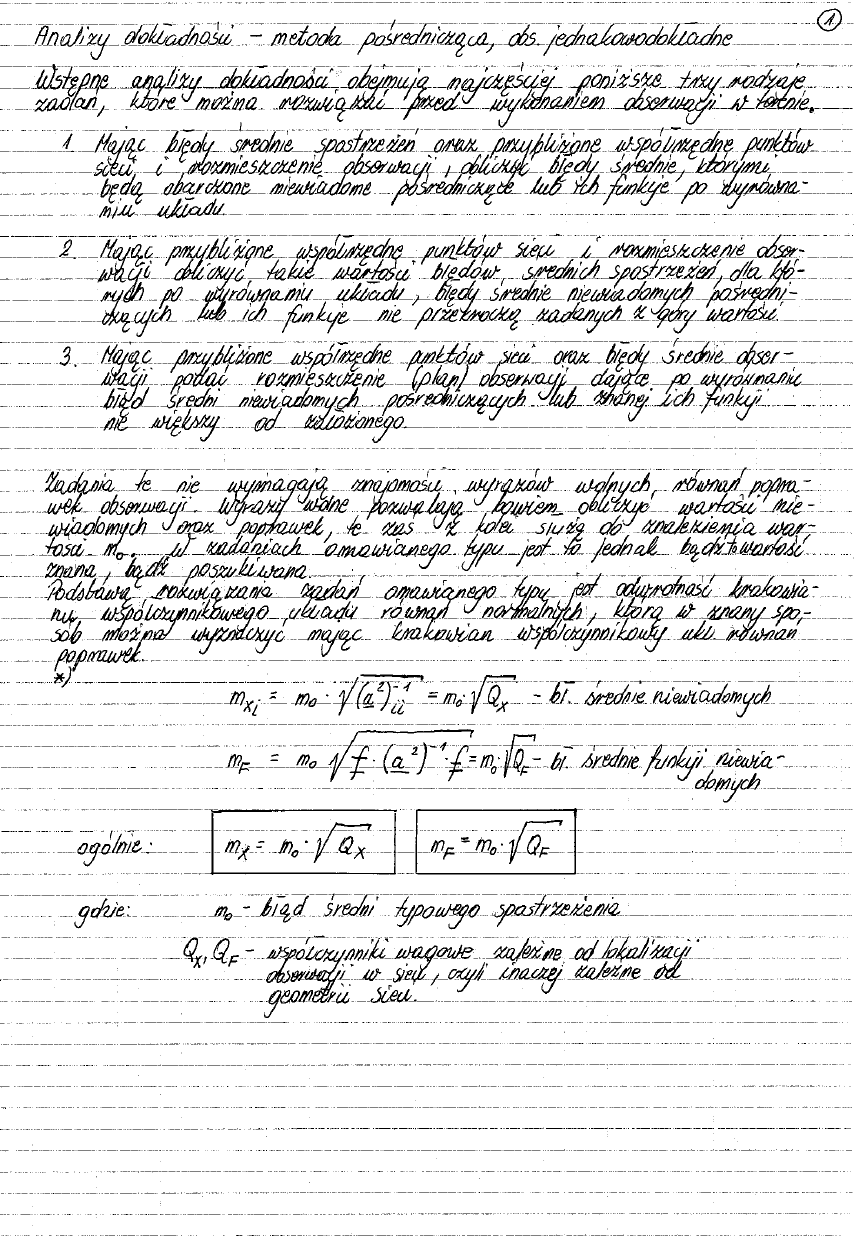 1
Analizy dokładności – metoda pośrednicząca, obs. jednakowodokładne
Wstępne analizy dokładności obejmują najczęściej poniższe trzy rodzaje
zadań, które można rozwiązać przed wykonaniem obserwacji w terenie.
1. Mając błędy średnie spostrzeżeń oraz przybliżone współrzędne punktów
sieci, i rozmieszczenie obserwacji, obliczyć błędy średnie, którymi
będą obarczone niewiadome pośredniczące lub ich funkcje po wyrówna-
niu układu.
2. Mając przybliżone współrzędne punktów sieci i rozmieszczenie obser-
wacji obliczyć takie wartości błędów średnich spostrzeżeń, dla któ-
rych po wyrównaniu układu, błędy średnie niewiadomych pośredni-
czących lub ich funkcje nie przekroczą zadanych z góry wartości.
3. Mając przybliżone współrzędne punktów sieci oraz błędy średnie obser-
wacji podać rozmieszczenie (plan) obserwacji, dające po wyrównaniu
błąd średni niewiadomych pośredniczących lub znanej ich funkcji
nie większy od założonego.
Zadania te nie wymagają znajomości wyrazów wolnych, równań popra-
wek obserwacji. Wyrazy wolne pozwalają bowiem obliczyć wartości nie-
wiadomych oraz poprawek, te zaś z kolei służą do znalezienia war-
tości m₀. W zadaniach omawianego typu jest to jednak bądź to wartość
znana, bądź poszukiwana.
Podstawą rozwiązania zadań omawianego typu jest odwrotność krakowia-
nu współczynnikowego układu równań normalnych, którą w znany spo-
sób można wyznaczyć mając krakowian współczynnikowy ukł. równań
poprawek.
*)
m_{xi} = m₀ · √(a²)⁻¹_{ii} = m₀·√Q_x – bł. średnie niewiadomych
m_F = m₀ √f · (a²)⁻¹ · f = m₀·√Q_F – bł. średnie funkcji niewia-
domych
ogólnie: m_x = m₀ · √Q_x m_F = m₀ · √Q_F
gdzie: m₀ – błąd średni typowego spostrzeżenia
Q_x, Q_F – współczynniki wagowe zależne od lokalizacji
obserwacji w sieci, czyli inaczej zależne od
geometrii sieci.